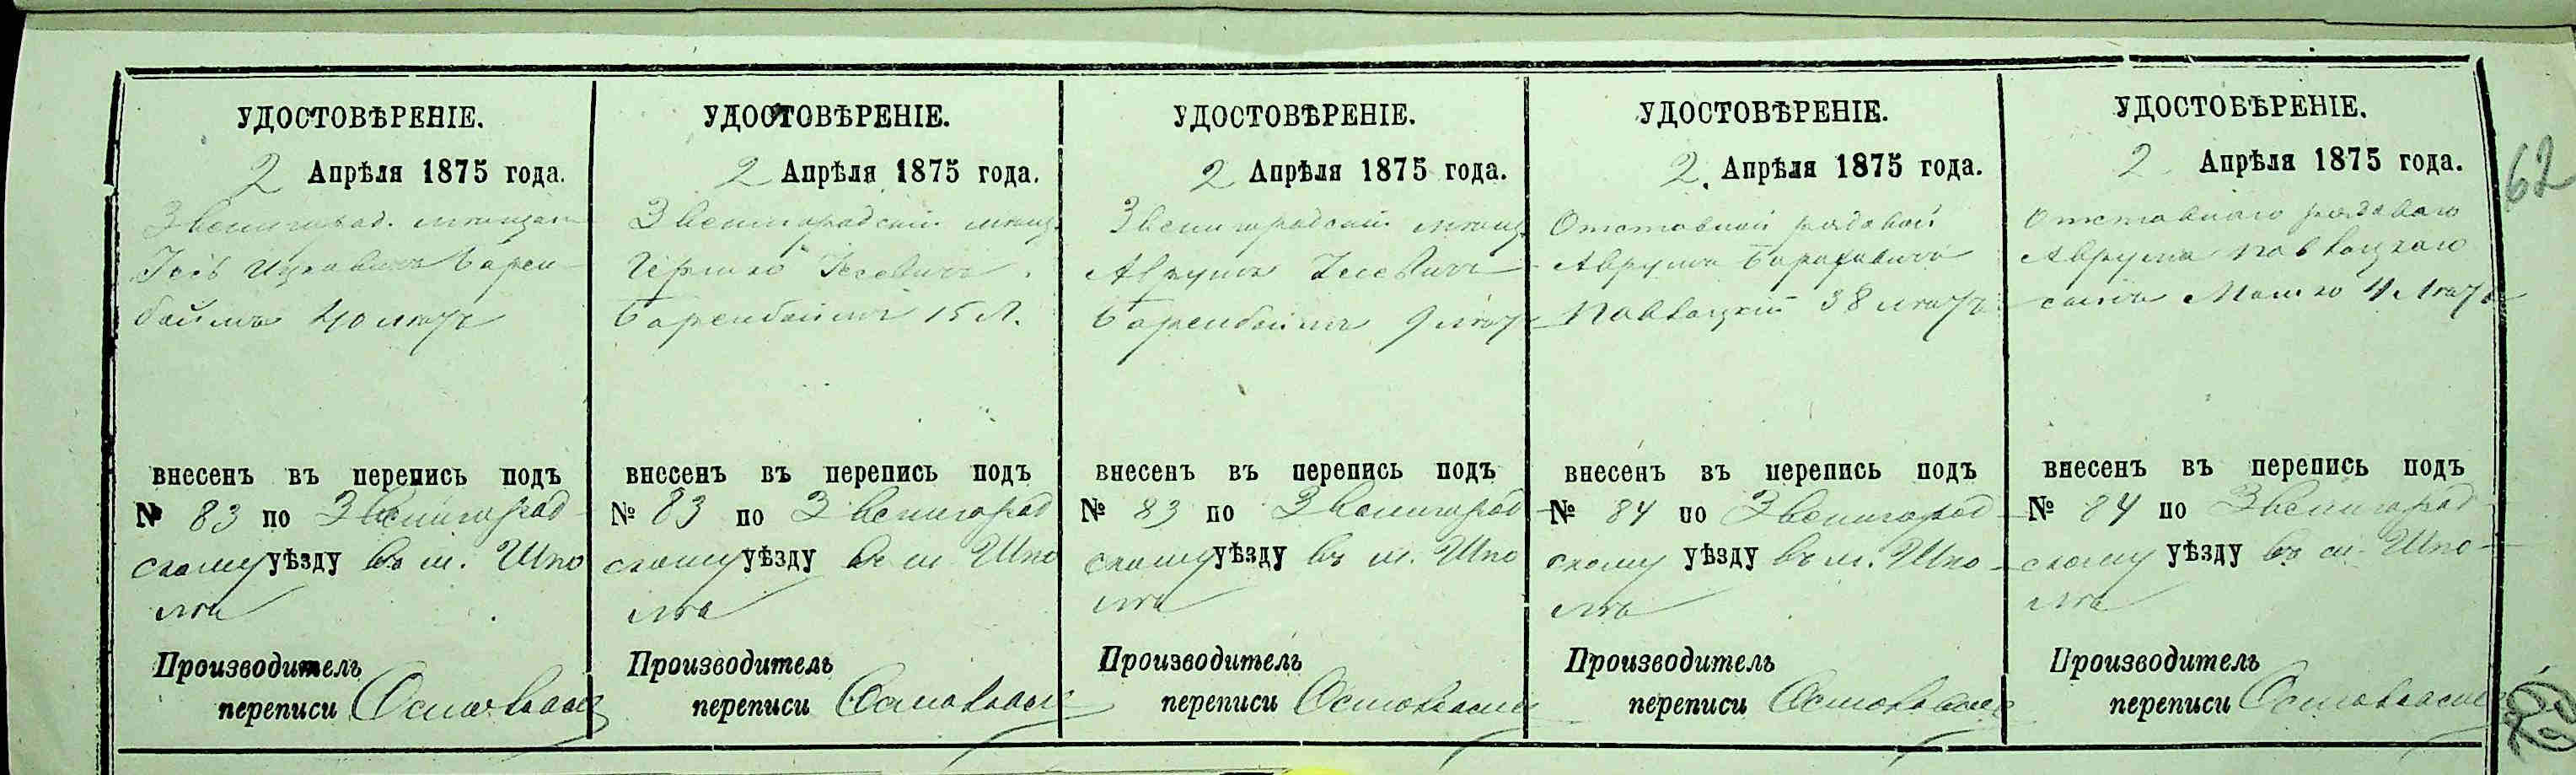 УДОСТОВѢРЕНІЕ.
2 Апрѣля 1875 года.
Звенигород. мѣщан
Іосъ Ицковичъ Барен-
боймъ 40 лѣтъ
внесенъ въ перепись подъ
№ 83 по Звенигород
скому уѣзду въ м. Шпо
лѣ
Производитель
переписи
УДОСТОВѢРЕНІЕ.
2 Апрѣля 1875 года.
Звенигородскій мѣщ.
Гершко Іосевичъ
Баренбоймъ 15 л.
внесенъ въ перепись подъ
№ 83 по Звенигород
скому уѣзду въ м Шпо
лѣ
Производитель
переписи
УДОСТОВѢРЕНІЕ.
2 Апрѣля 1875 года.
Звенигородскій мѣщ.
Аврумъ Іосевичъ
Баренбоймъ 9 лѣтъ
внесенъ въ перепись подъ
№ 83 по Звенигород
скому уѣзду въ м. Шпо
лѣ
Производитель
переписи
УДОСТОВѢРЕНІЕ.
2 Апрѣля 1875 года.
Отставной рядовой
Аврумъ
Павлоцкій 38 лѣтъ
внесенъ въ перепись подъ
№ 84 по Звенигород
скому уѣзду въ м. Шпо-
лѣ
Производитель
переписи
УДОСТОВѢРЕНІЕ.
2 Апрѣля 1875 года.
Отставного рядоваго
Аврума Павлоцкаго
сынъ Мошко 4 лѣтъ
внесенъ въ перепись подъ
№ 84 по Звенигород
скому уѣзду въ м. Шпо-
лѣ
Производитель
переписи
62